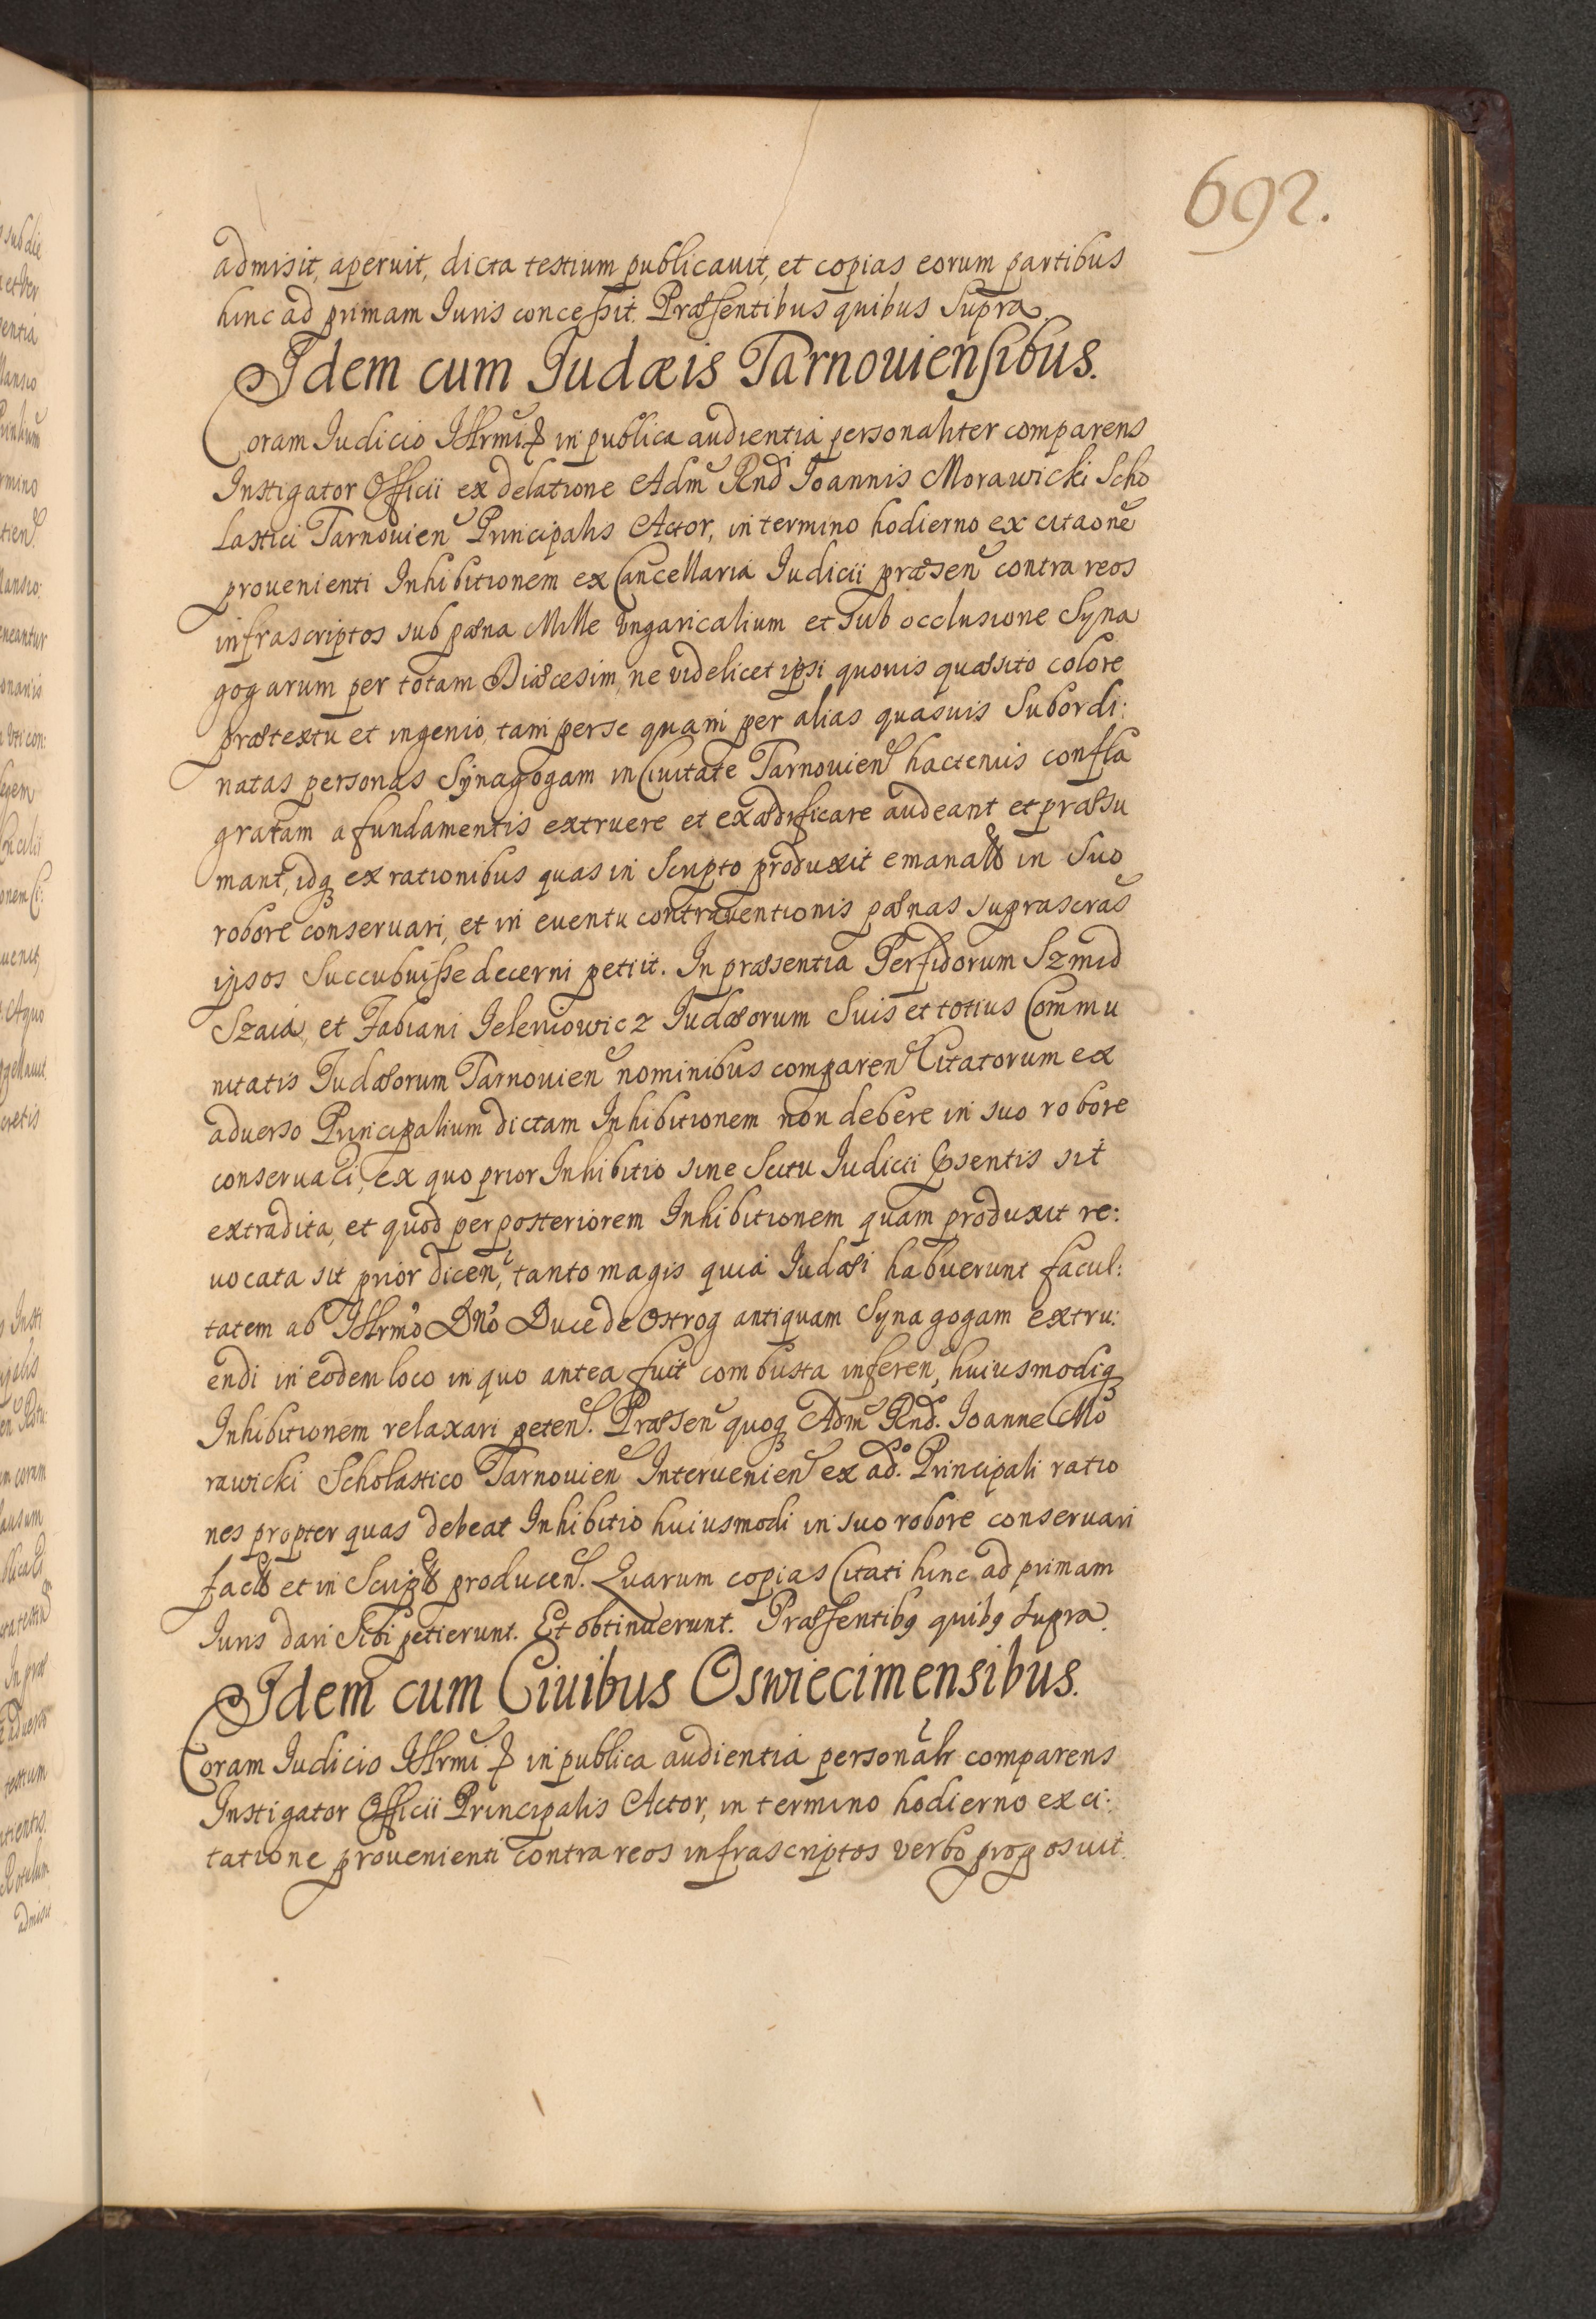 692.
admisit, aperuit, dicta testium publicauit, et copias eorum partibus
hinc ad primam Iuris concessit. Præsentibus quibus Supra.
Idem cum Iudæis Tarnouiensibus.
Coram Iudicio Illrmi in publica audientia personaliter comparens
Instigator Officii ex delatione Adm Rnd Ioannis Morawicki Scho
lastici Tarnouien Principalis Actor, in termino hodierno ex citaone
prouenienti Inhibitionem ex Cancellaria Iudicii præsen contra reos
infrascriptos sub pœna Mille Vngaricalium et sub occlusione Syna
gogarum per totam Diœcesim, ne videlicet ipsi quouis quæsito colore
prætextu et ingenio, tam per se quam per alias quasuis Subordi:
natas personas Synagogam in Ciuitate Tarnouien hactenus confla
gratam a fundamentis extruere et exædificare audeant et præsu
mant, idq ex rationibus quas in Scripto produxit emanatt in Suo
robore conseruari, et in euentu contrauentionis pœnas suprascras
ipsos Succubuisse decerni petiit. In præsentia Perfidorum Szmid
Szaia, et Fabiani Ieleniowicz Iudæorum Suis et totius Commu
nitatis Iudæorum Tarnouien nominibus comparen Citatorum ex
aduerso Principalium dictam Inhibitionem non debere in suo robore
conseruari, ex quo prior Inhibitio sine Scitu Iudicii Psentis sit
extradita, et quod per posteriorem Inhibitionem quam produxit re:
uocata sit prior dicen, tanto magis quia Iudæi habuerunt facul:
tatem ab Illrmo Dno Duce de Ostrog antiquam Synagogam extru:
endi in eodem loco in quo antea fuit combusta inferen, huiusmodiq
Inhibitionem relaxari peten. Præsen quoq Adm Rnd. Ioanne Mo
rawicki Scholastico Tarnouien Interuenien ex ado. Principali ratio
nes propter quas debeat Inhibitio huiusmodi in suo robore conseruari
factt et in Scriptt producen. Quarum copias Citati hinc ad primam
Iuris dari Sibi petierunt. Et obtinuerunt. Præsentibq quibq Supra.
Idem cum Ciuibus Oswiecimensibus.
Coram Iudicio Illrmi in publica audientia personalr comparens
Instigator Officii Principalis Actor, in termino hodierno ex ci:
tatione prouenienti contra reos infrascriptos verbo proposuit.